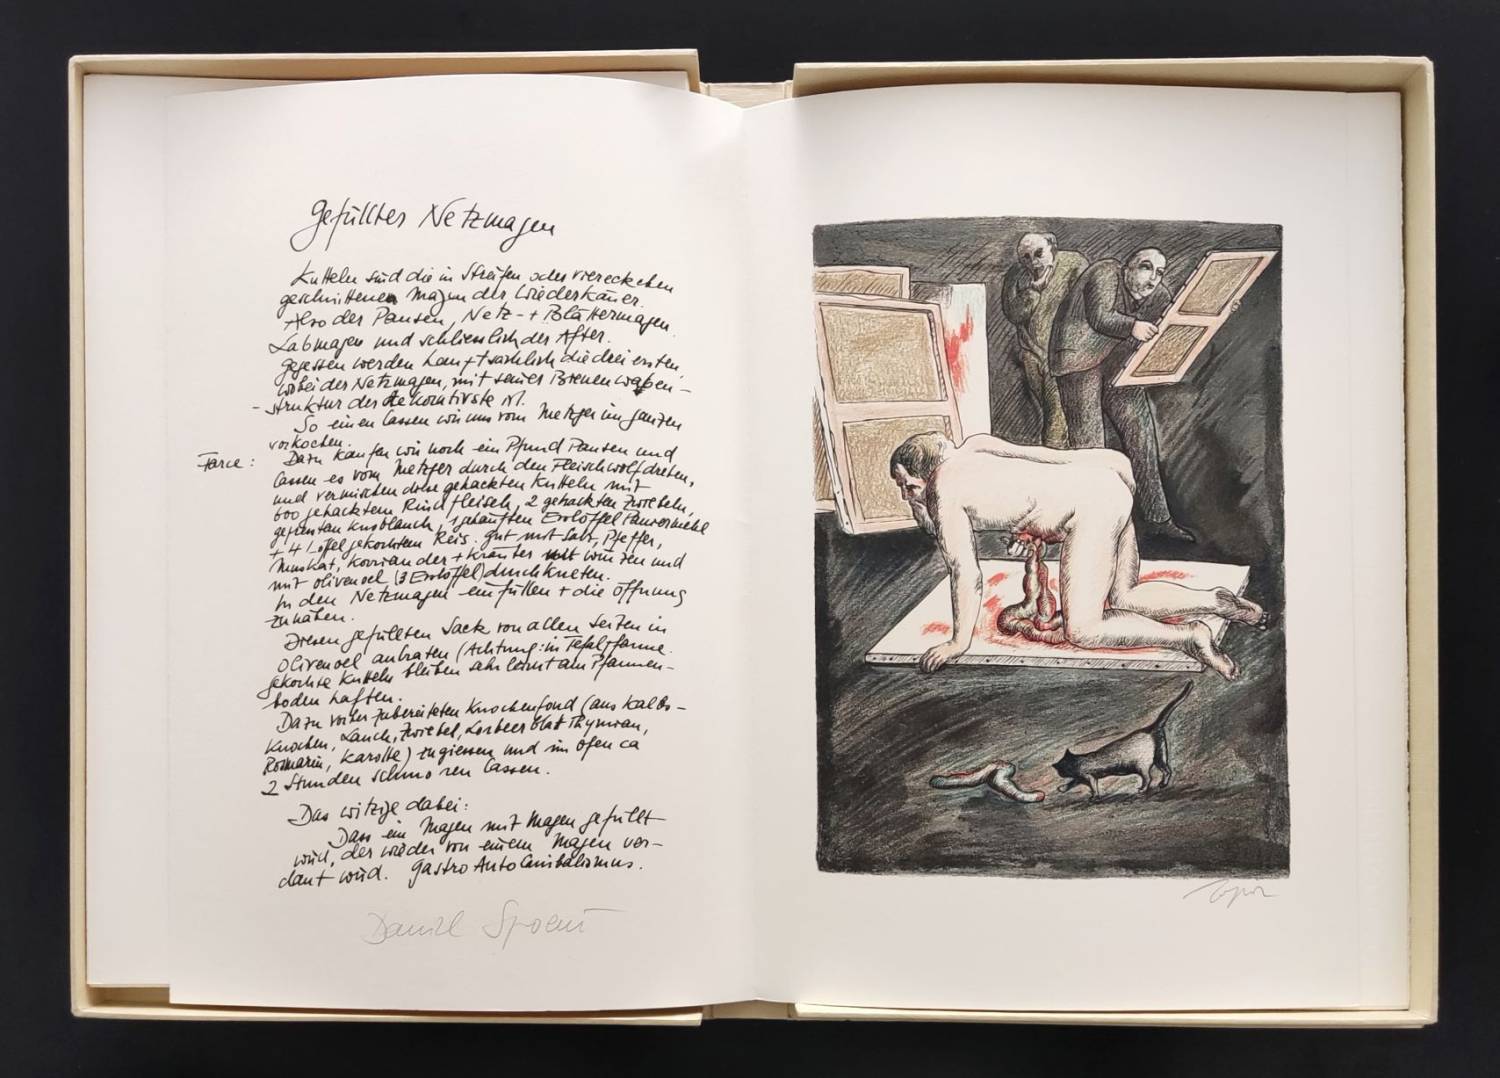 Gefülltes Netzmagen
Kutteln sind die in Streifen oder viereckchen
geschnittenen Magen der Wiederkäuer.
Also der Pansen, Netz- + Blättermagen.
Labmagen und schliesslich der After.
gegessen werden hauptsächlich die drei ersten,
wobei der Netzmagen, mit seiner Bienenwaben-
-struktur der dekorativste ist.
So einen lassen wir uns vom Metzger im ganzen
vorkochen.
Farce: Dazu kaufen wir noch ein Pfund Pansen und
lassen es vom Metzger durch den Fleischwolf drehen,
und vermischen diese gehackten Kutteln mit
600 gehacktem Rindfleisch, 2 gehackten Zwiebeln,
gepressten Knoblauch, 1 gehäuften Esslöffel Paniermehl
+ 4 Löffel gekochtem Reis. gut mit Salz, Pfeffer,
Muskat, Koriander + Kräuter würzen und
mit olivenoel (3 Esslöffel) durchkneten.
In den Netzmagen einfüllen + die öffnung
zunähen.
Diesen gefüllten Sack von allen Seiten in
olivenoel anbraten (Achtung: in Tefalpfanne.
gekochte Kutteln bleiben sehr leicht am Pfannen-
boden haften.
Dazu vorher zubereiteten Knochenfond (aus Kalbs-
Knochen, Lauch, Zwiebel, Lorbeerblat Thymian,
Rosmarin, Karotte) zugiessen und im ofen ca
2 Stunden schmoren lassen.
Das witzige dabei:
Dass ein Magen mit Magen gefüllt
wird, der wieder von einem Magen ver-
daut wird. GastroAutoCanibalismus.
Daniel Spoerri
Topor